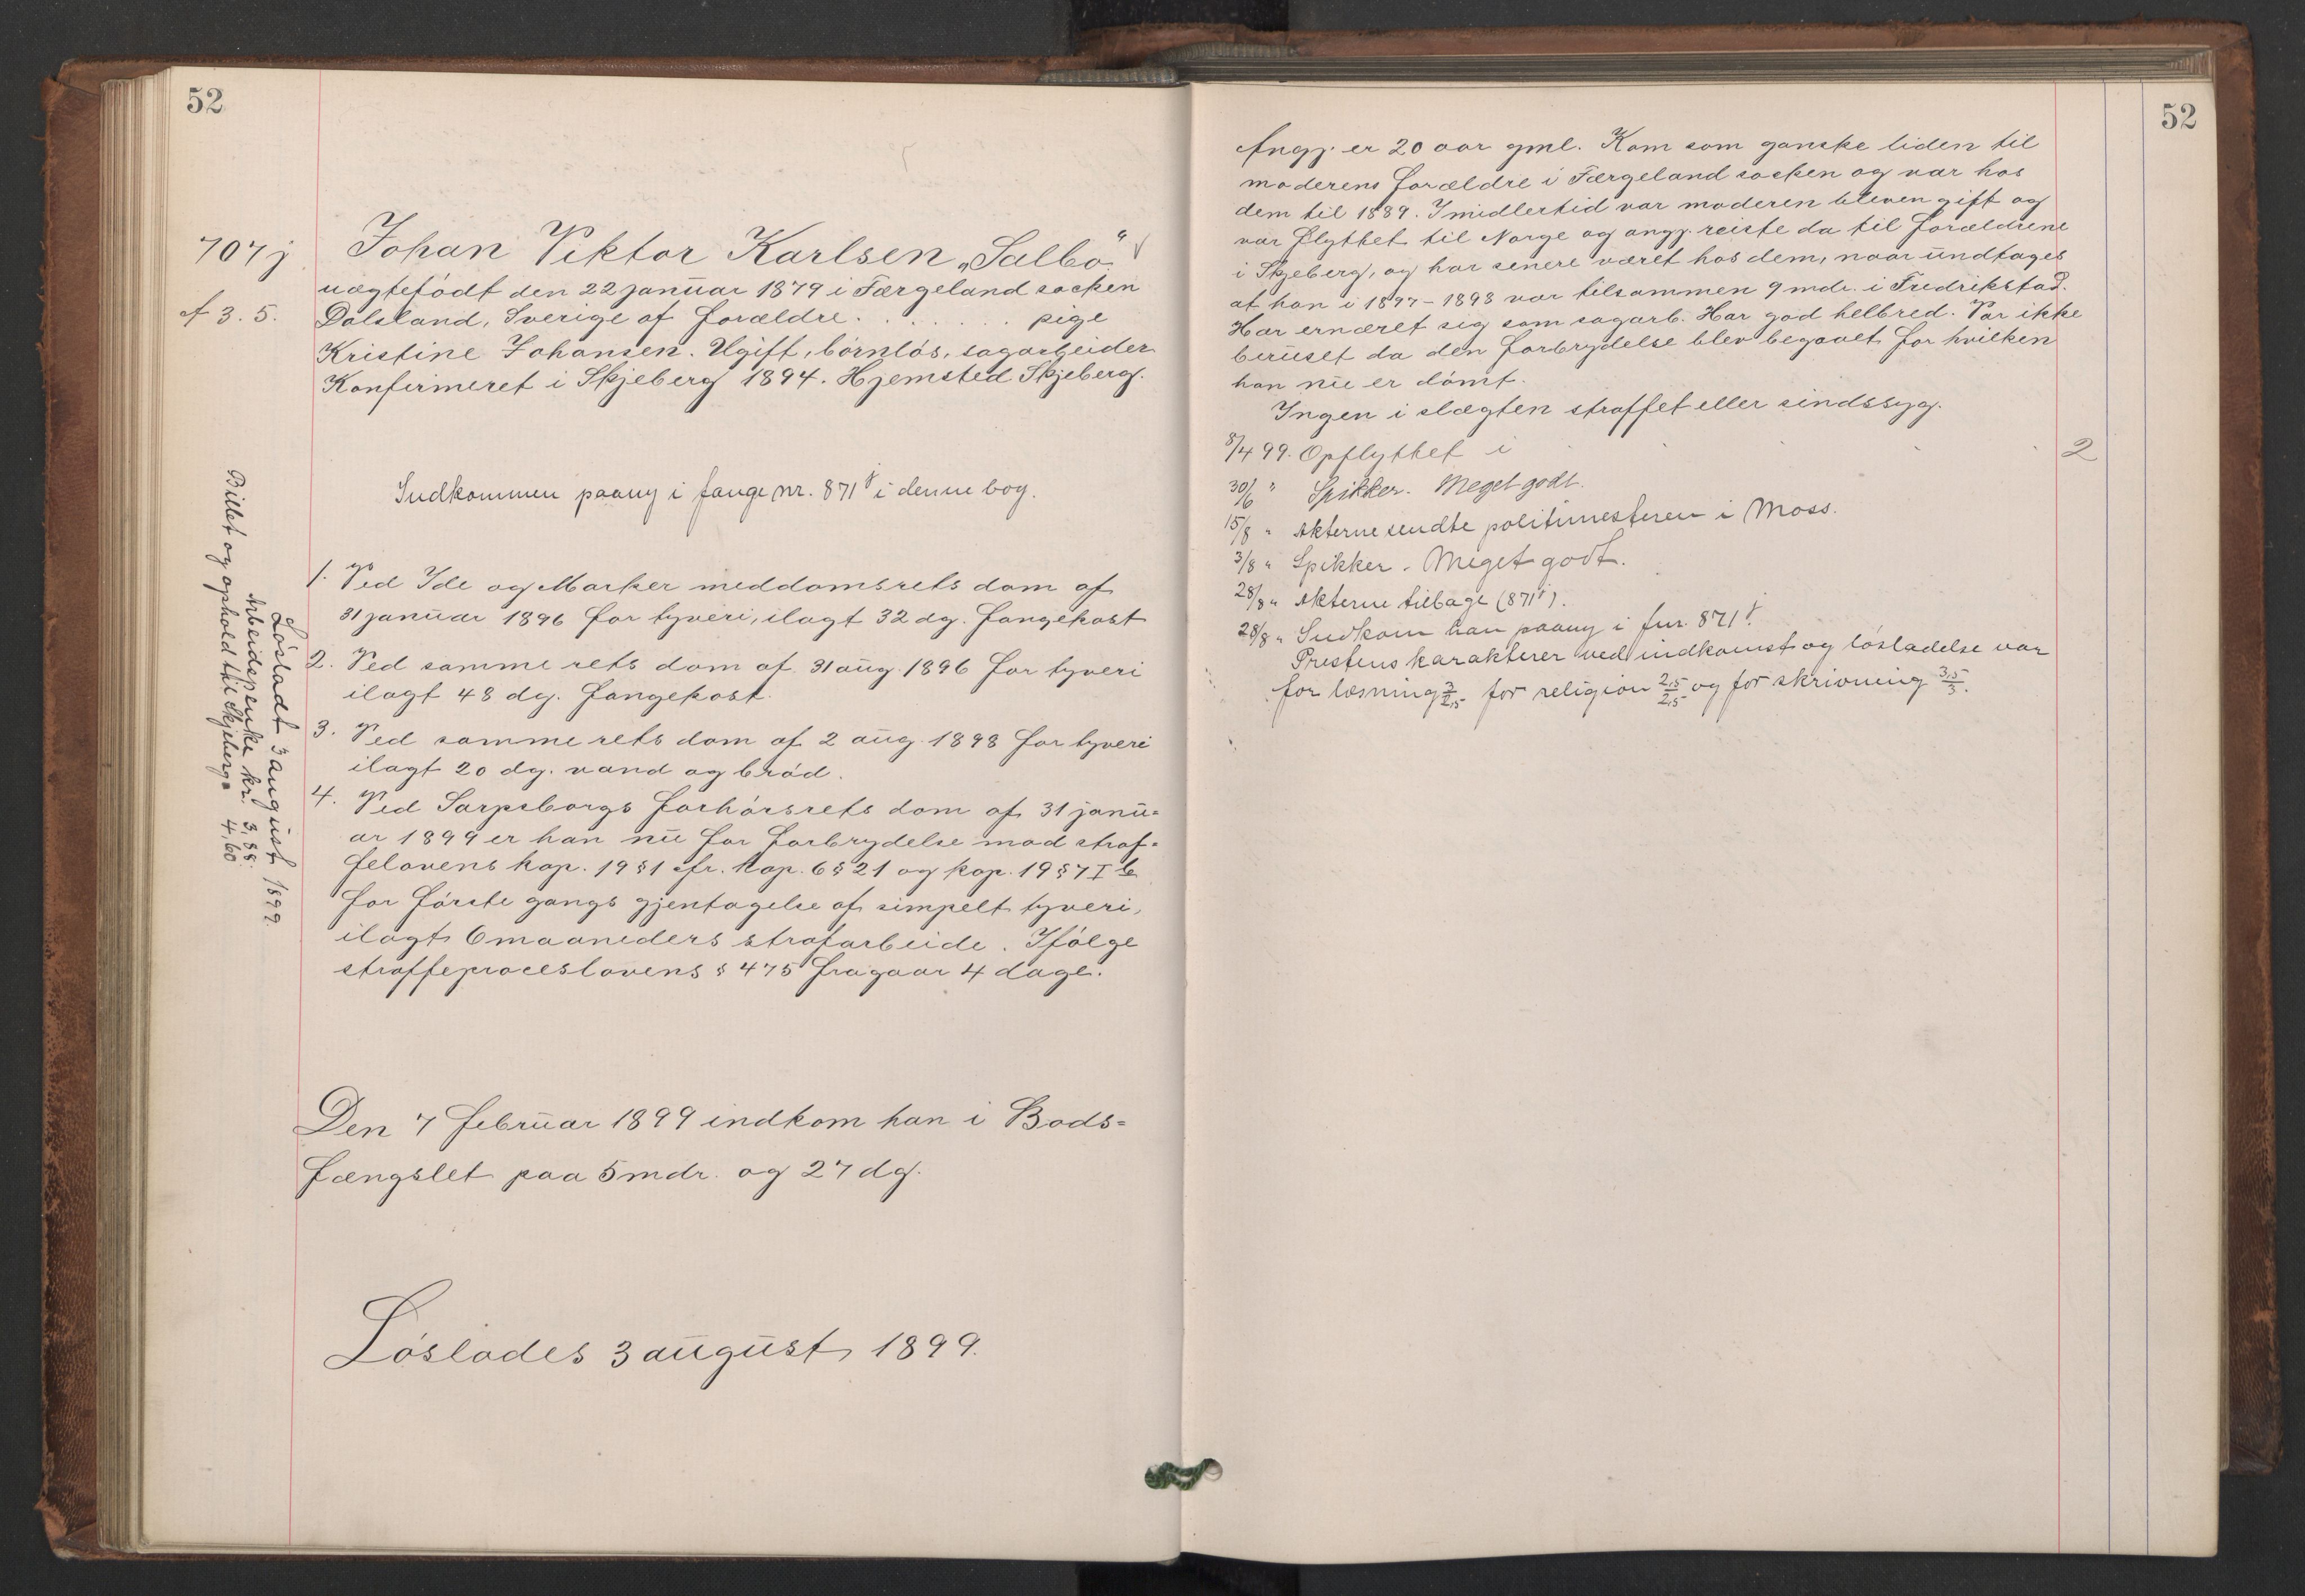 52
707 j
f 3. 5.
Johan Viktor Karlsen „Salbo"
uægtefödt den 22 januar 1879 i Færgeland socken
Dalsland, Sverige af forældre . . . . . . . pige
Kristine Johansen. Ugift, börnlös, sagarbeider.
Konfirmeret i Skjeberg 1894. Hjemsted Skjeberg.
Indkommen paany i fange nr. 871 j i denne bog.
1. Ved Ide og Marker meddomsrets dom af
31 januar 1896 for tyveri, ilagt 32 dg. fangekost
2. Ved samme rets dom af 31 aug. 1896 for tyveri
ilagt 48 dg. fangekost.
3. Ved samme rets dom af 2 aug. 1898 for tyveri
ilagt 20 dg. vand og bröd.
4. Ved Sarpsborgs forhörsrets dom af 31 janu=
ar 1899 er han nu for forbrydelse mod straf=
felovens kap. 19 § 1 cfr. kap. 6 § 21 og kap. 19 § 7 I b
for förste gangs gjentagelse af simpelt tyveri,
ilagt 6 maaneders strafarbeide. Ifölge
straffeproceslovens § 475 fragaar 4 dage.
Den 7 februar 1899 indkom han i Bods=
fængslet paa 5 mdr. og 27 dg.
Löslades 3 august 1899.
Lösladt 3 august 1899.
Arbeidspenke kr. 3,88.
Billet og ophold til Skjeberg " 4,60
52
Angj. er 20 aar gml. Kom som ganske liden til
moderens forældre i Færgeland socken og var hos
dem til 1889. Imidlertid var moderen bleven gift og
var flyttet til Norge og angj. reiste da til forældrene
i Skjeberg, og har senere været hos dem, naar undtages
at han i 1897-1898 var tilsammen 9 mdr. i Fredrikstad.
Har ernæret sig som sagarb. Har god helbred. Var ikke
beruset da den forbrydelse blev begaaet for hvilken
han nu er dömt.
Ingen i slægten straffet eller sindssyg.
8/4 99. Opflyttet i 2
30/6 " Spikker. Meget godt.
15/8 " Akterne sendte politimesteren i Moss.
3/8 " Spikker. Meget godt.
28/8 " Akterne tilbage (871 j).
28/8 " Indkom han paany i fnr. 871 j.
Prestens karakterer ved indkomst og lösladelse var
for læsning 3/2,5 for religion 2,5/2,5 og for skrivning 3,5/3.